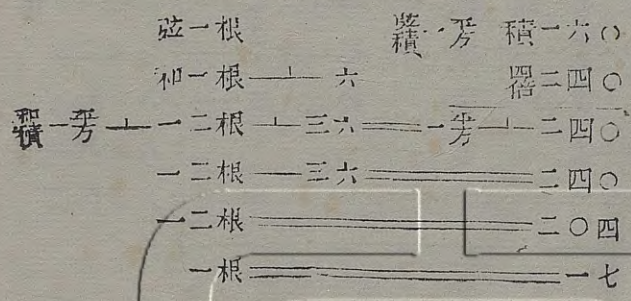 弦一根 弦積一平方 積一六〇
和一根⊥六 四倍二四〇
和積一平方⊥一二根⊥三六＝一平方⊥二四〇
一二根⊥三六＝二四〇
一二根＝二〇四
一根＝一七